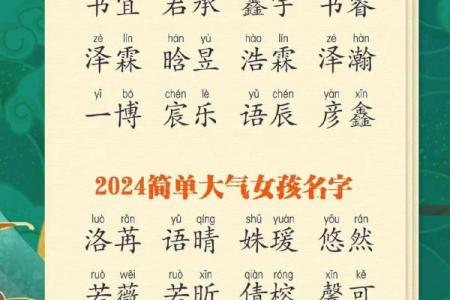 书宜 若承 鑫宇 书睿
zé lín hán yù hào lín zé hàn
泽霖 晗昱 浩霖 泽瀚
yī bó chén lè yǔ chén yàn xīn
一博 宸乐 语辰 彦鑫
2024简单大气女孩名字
luò rǎn yǔ qíng shū yuàn yōu rán
洛苒 语晴 姝瑗 悠然
ruò wēi ruò xīn qiàn róng xīn kě
若薇 若昕 倩榕 馨可